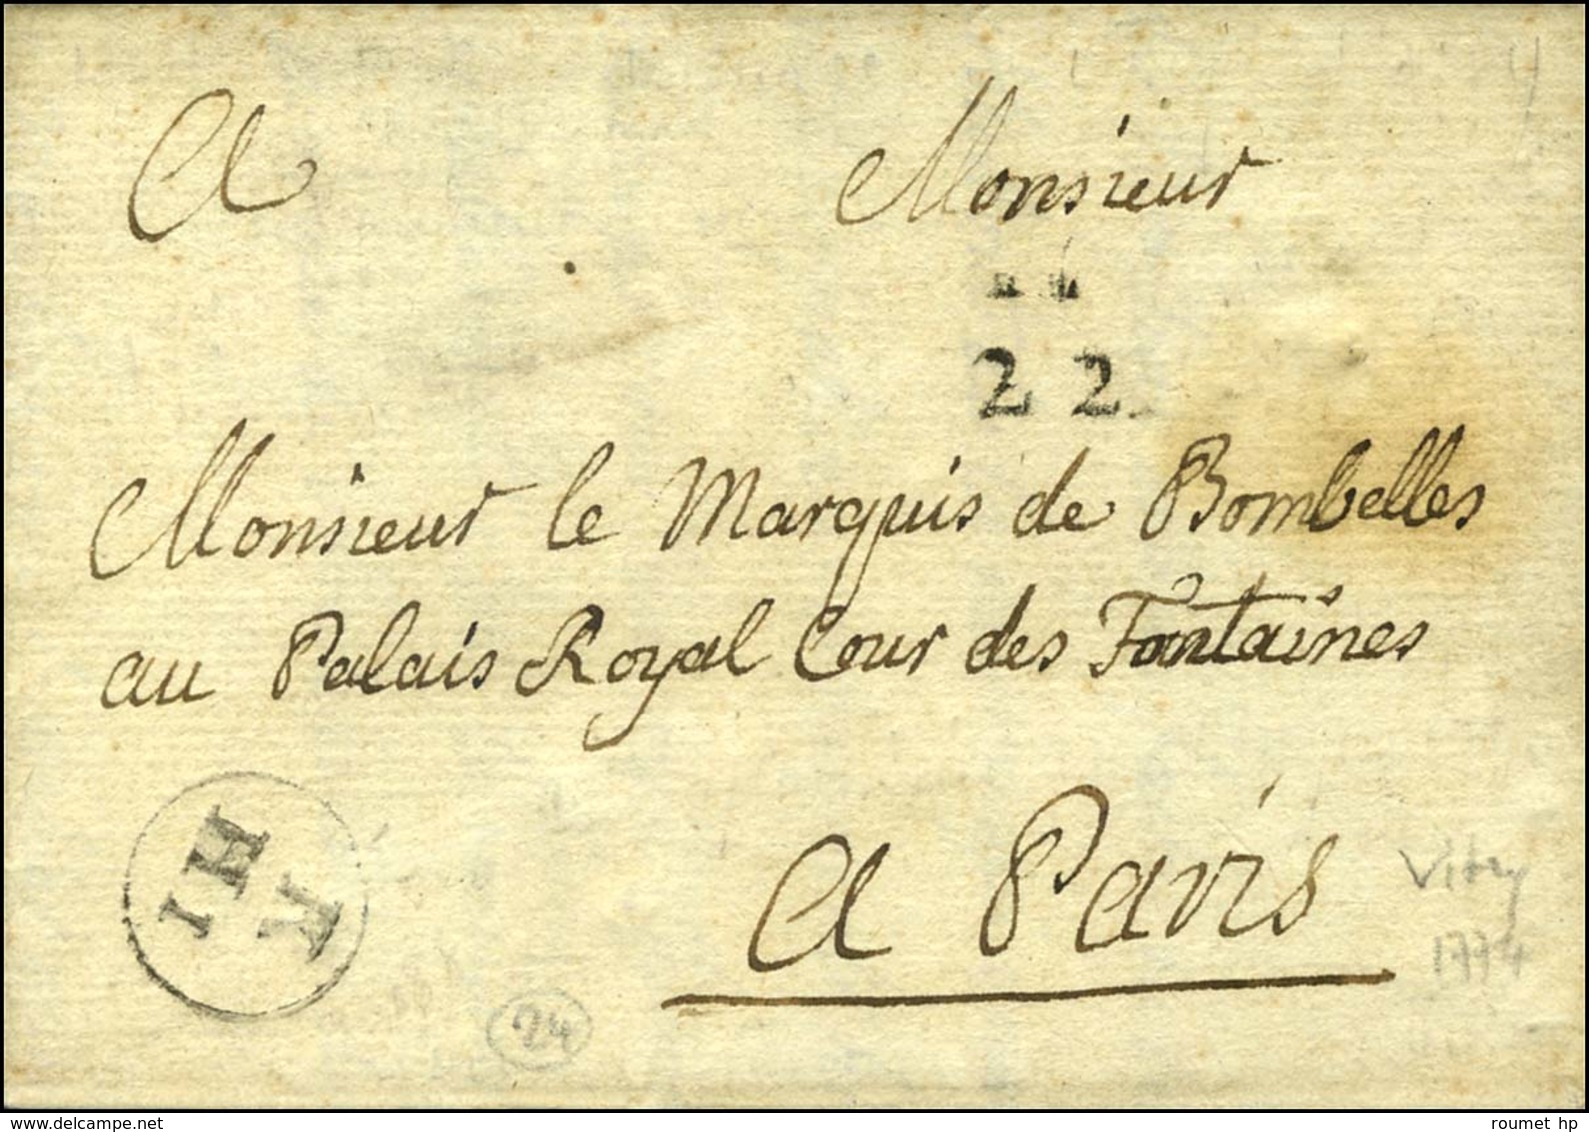 A Monsieur
22
Monsieur le Marquis de Bombelles
au Palais Royal Cour des Fontaines
A Paris
K
HI
Vitry
1774
24
delcampe.net
roumet hp